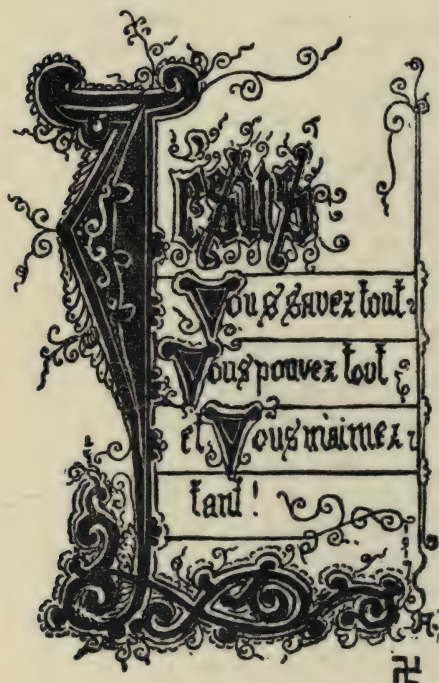 Jesus
Vous savez tout
Vous pouvez tout
et Vous m'aimez
tant !
A.